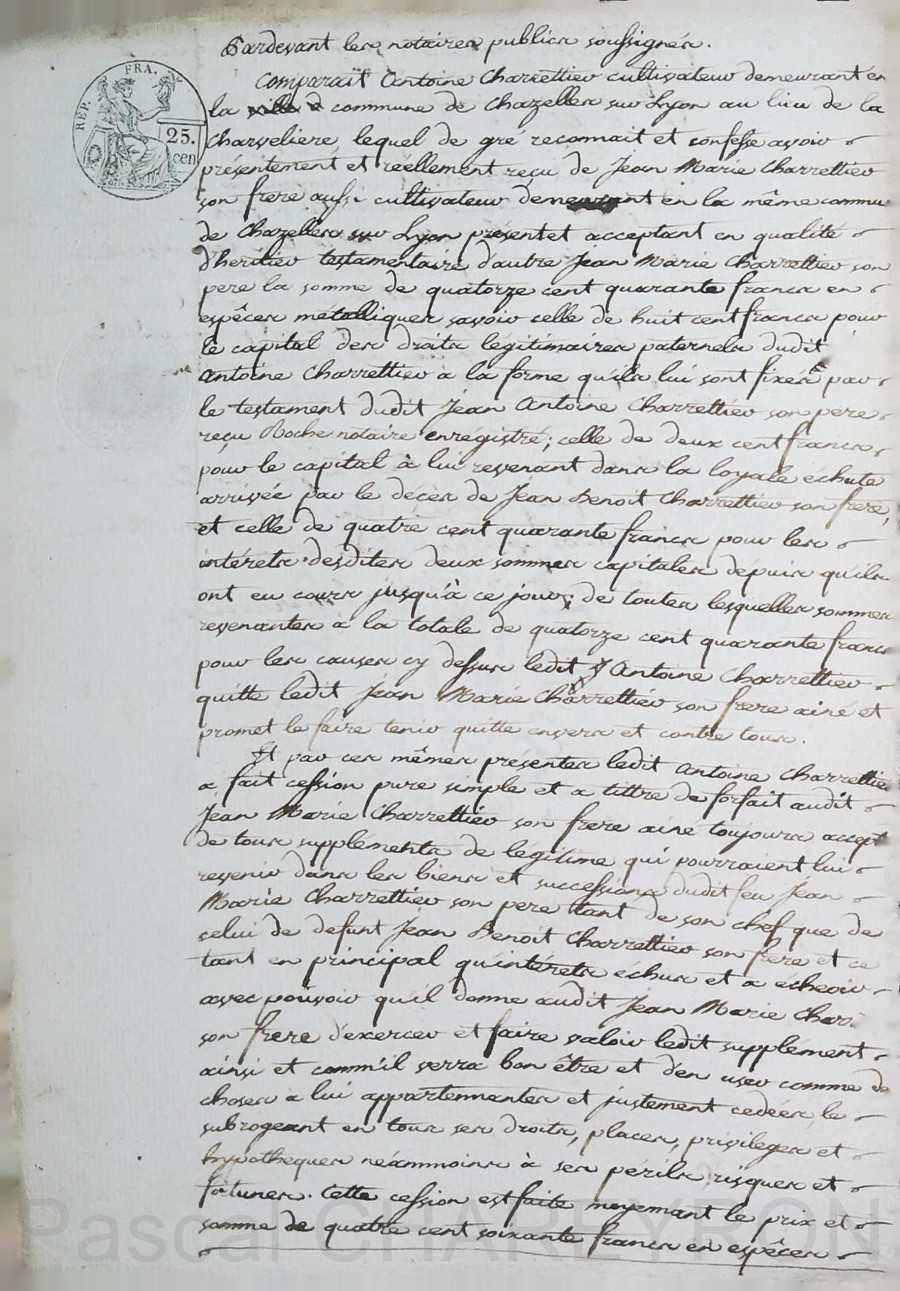 REP. FRA.
25.
cen
Pardevant les notaires publics soussignés.
Comparait Antoine Charrettier cultivateur demeurant en
la commune de Chazelles sur Lyon au lieu de la
Charveliere, lequel de gré reconnait et confesse avoir
présentement et réellement reçu de Jean Marie Charrettier
son frere aussi cultivateur demeurant en la même commu
de Chazelles sur Lyon présent et acceptant en qualité
d'heritier testamentaire d'autre Jean Marie Charrettier son
pere la somme de quatorze cent quarante francs en
espêces métalliques savoir celle de huit cent francs pour
le capital des droits légitimaires paternels dudit
Antoine Charrettier à la forme qu'ils lui sont fixés par
le testament dudit Jean Antoine Charrettier son pere
reçu Roche notaire enrégistré; celle de deux cent francs,
pour le capital à lui revenant dans la loyale échute
arrivée par le décès de Jean Benoit Charrettier son frere,
et celle de quatre cent quarante francs pour les
intérets desdites deux sommes capitales depuis qu'ils
ont eu cours jusqu'à ce jour; de toutes lesquelles sommes
revenantes a la totale de quatorze cent quarante francs
pour les causes cy dessus ledit Antoine Charrettier
quitte ledit Jean Marie Charrettier son frere ainé et
promet le faire tenir quitte envers et contre tous.
Et par ces mêmes présentes ledit Antoine Charrettie
a fait cession pure simple et a tittre de forfait audit
Jean Marie Charrettier son frere ainé toujours accept
de tous suppléments de légitime qui pourraient lui
revenir dans les biens et successions dudit feu Jean
Marie Charrettier son pere tant de son chef que de
celui de defunt Jean Benoit Charrettier son frere et ce
tant en principal qu'intérets échus et a écheoir
avec pouvoir qu'il donne audit Jean Marie Charr
son frere d'exercer et faire valoir ledit supplément
ainsi et comm'il verra bon être et d'en user comme de
choses a lui appartennantes et justement cedées, le
subrogeant en tous ses droits, places, privileges et
hypotheques néammoins à ses périls risques et
fortunes. Cette cession est faite moyennant le prix et
somme de quatre cent soixante francs en espêces
Pascal CHAREYRON